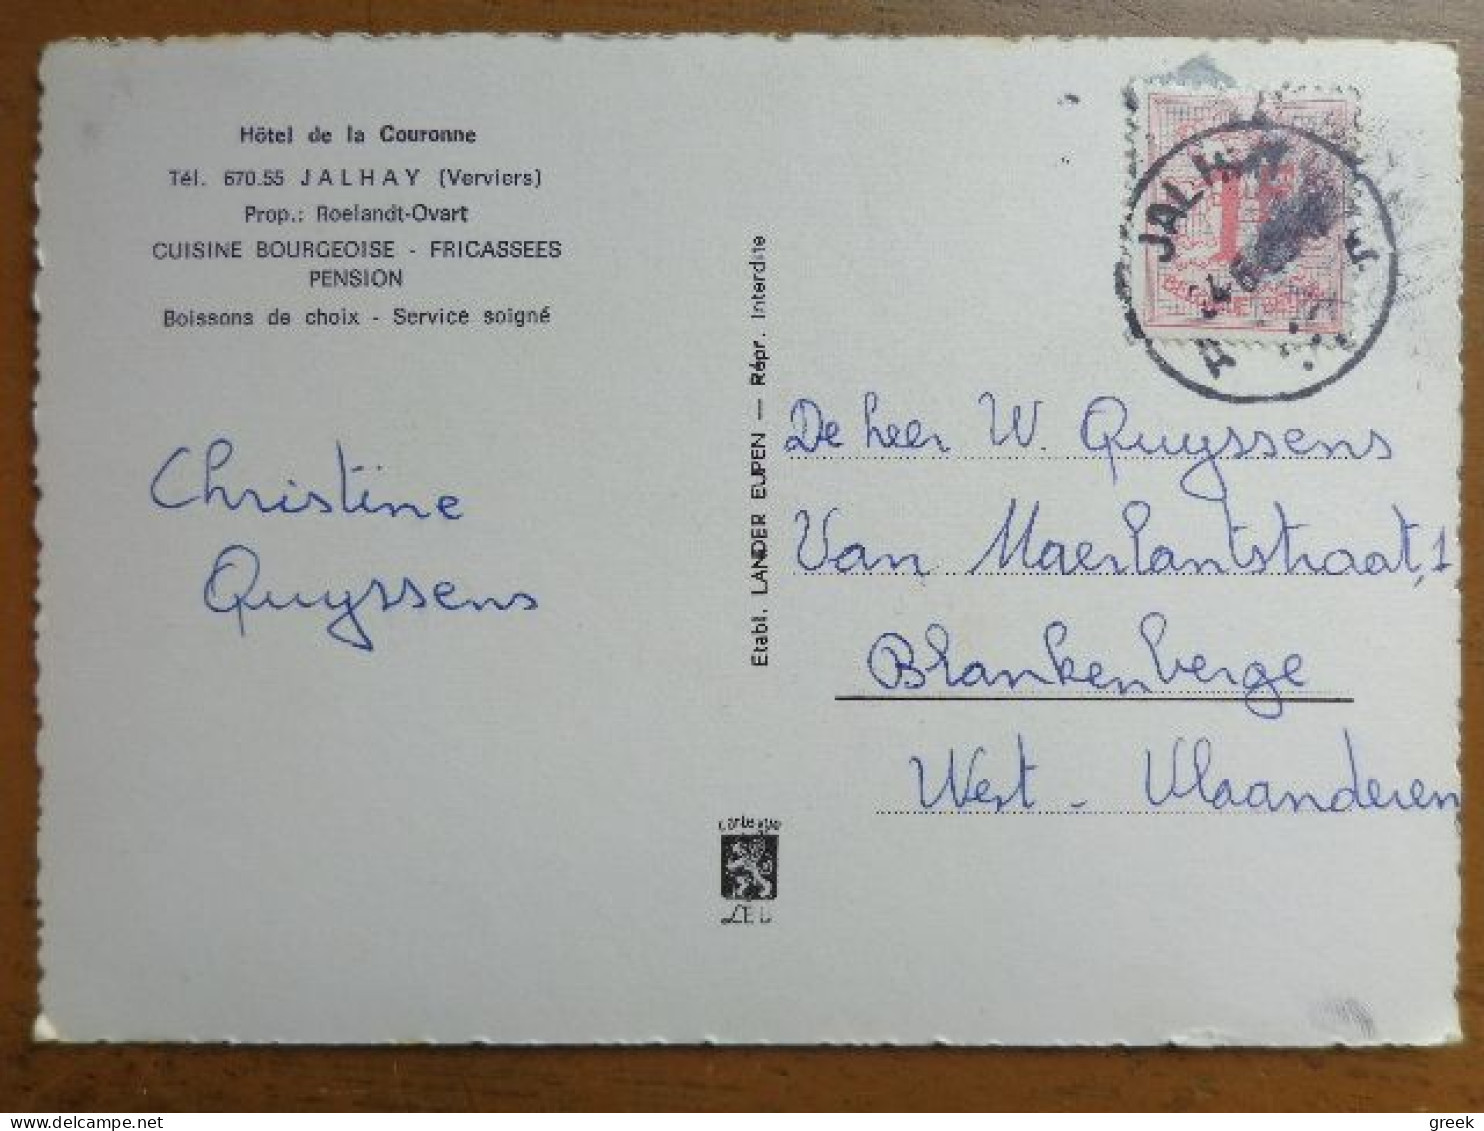 Hôtel de la Couronne
Tél. 670.55 JALHAY (Verviers)
Prop.: Roelandt-Ovart
CUISINE BOURGEOISE - FRICASSEES
PENSION
Boissons de choix - Service soigné
Christine
Quyssens
Etabl. LANDER EUPEN — Répr. Interdite
JALHAY
1F
A
De heer W. Quyssens
Van Maerlantstraat, 1
Blankenberge
West - Vlaanderen
greek